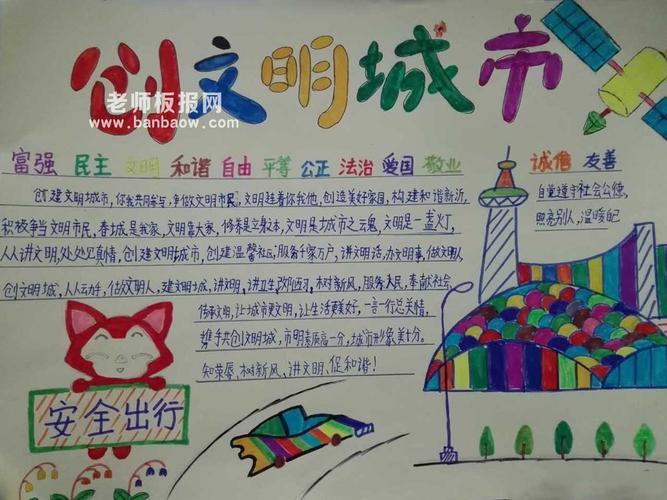 创文明城市
老师板报网
www.banbaow.com
富强 民主 文明 和谐 自由 平等 公正 法治 爱国 敬业 诚信 友善
创建文明城市,你我共同参与,争做文明市民,文明连着你我他,创造美好家园,构建和谐新沂,
积极争当文明市民,春城是我家,文明靠大家,修养是立身之本,文明是城市之魂,文明是一盏灯,
照亮别人,温暖自己
自觉遵守社会公德,
人人讲文明,处处见真情,创建文明城市,创建温馨社区,服务千家万户,讲文明话,办文明事,做文明人
创文明城,人人动手,做文明人,建文明城,讲文明,讲卫生,改陋习,树新风,服务人民,奉献社会,
传承文明,让城市更文明,让生活更美好,一言一行总关情,
携手共创文明城,市明素质高一分,城市形象美十分。
知荣辱、树新风、讲文明、促和谐!
安全出行